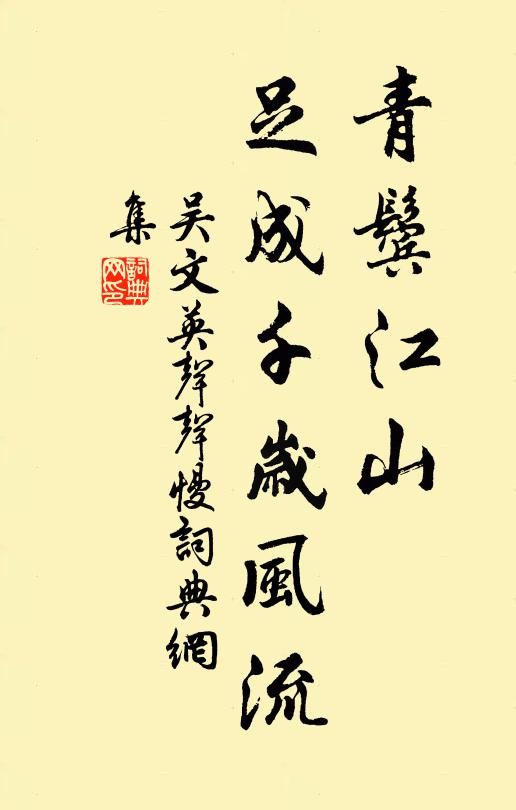 青鬢江山
足成千歲風流
吳文英聲聲慢詞典網
集
詞典
网印